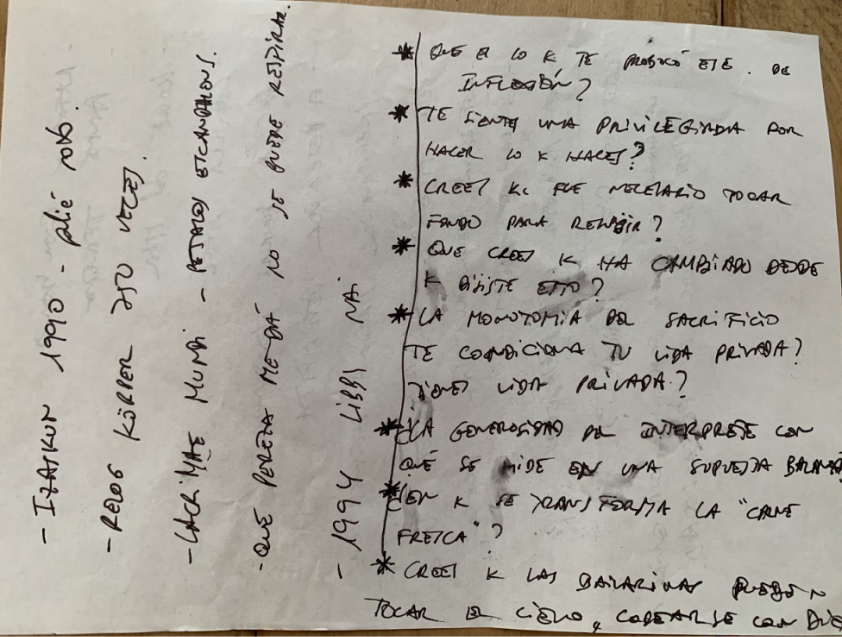 - IZAIKUN 1990 - plié roto.
- RELOG KÖRPER 250 VECES.
- LACRIMAE MUNDI - PETALOS ESCANDALOUS.
- QUÉ PEREZA ME DÁ NO SE PUEDE RESPIRAR.
- 1994 LIBBI NAI
* QUE ES LO K TE PROBOCÓ ESE . DE
INFLEXIÓN?
* TE SIENTES UNA PRIVILEGIADA POR
HACER LO K HACES?
* CREES K FUE NECESARIO TOCAR
FONDO PARA
* QUE CREES K HA CAMBIADO DESDE
K ESTO?
* LA MONOTOMIA DEL SACRIFICIO
TE CONDICIONA TU VIDA PRIVADA?
TIENES VIDA PRIVADA?
* ¿LA GENEROSIDAD DEL INTERPRETE CON
QUÉ SE MIDE EN UNA SUPUESTA BALANZA
* ¿EN K SE TRANSFORMA LA "CARNE
FRESCA"?
* CREES K LAS BAILARINAS PUEDEN
TOCAR EL CIELO, CODEARSE CON